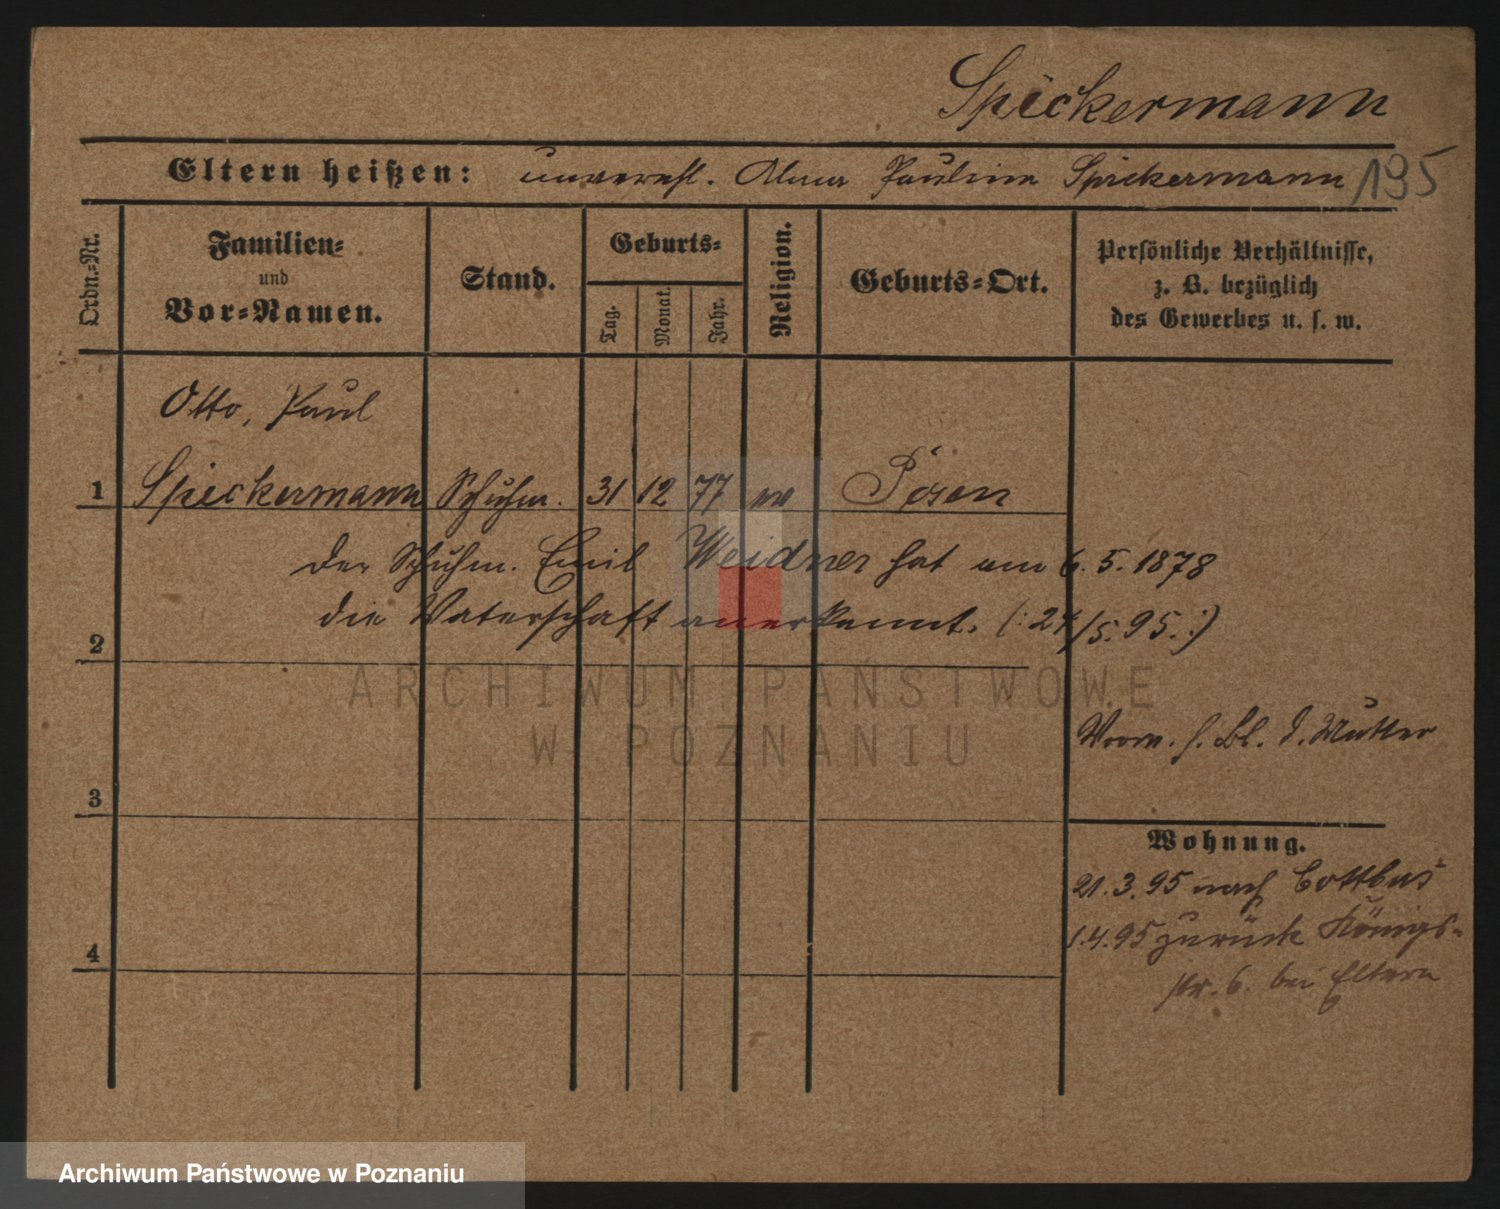 Spickermann
195
Eltern heißen: unverehl. Anna Pauline Spickermann
Ordn.=Nr.
Familien=
und
Vor=Namen.
Stand.
Geburts=
Tag.
Monat.
Jahr.
Religion.
Geburts=Ort.
Persönliche Verhältnisse,
z. B. bezüglich
des Gewerbes u. s. w.
Otto, Paul
1 Spickermann Schuhm. 31 12 77 ev Posen
Der Schuhm. Emil Weidner hat am 6. 5. 1878
die Vaterschaft anerkannt. (: 24/5. 95. :)
2
ARCHIWUM PAŃSTWOWE
W POZNANIU
s. Bl. d. Mutter
3
Wohnung.
21. 3. 95 nach Cottbus
1. 4. 95 zurück Königs-
str. 6. bei Eltern
4
Archiwum Państwowe w Poznaniu